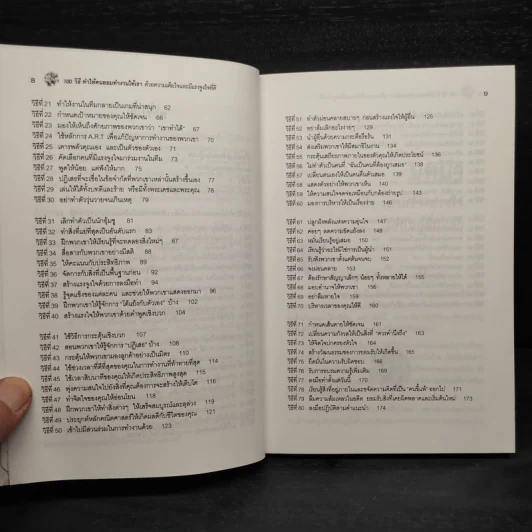 8 100 วิธี ทำให้คนยอมทำงานให้เรา ด้วยความเต็มใจและมีแรงจูงใจที่ดี
วิธีที่ 21 ทำให้งานในทีมกลายเป็นเกมที่น่าสนุก 62
วิธีที่ 22 กำหนดเป้าหมายของคุณให้ชัดเจน 66
วิธีที่ 23 มองให้เห็นถึงศักยภาพของพวกเขาว่า "เขาทำได้" 68
วิธีที่ 24 ใช้หลักการ A.R.T เพื่อแก้ปัญหาการทำงานของพวกเขา 70
วิธีที่ 25 เคารพตัวคุณเอง และเป็นตัวของตัวเอง 71
วิธีที่ 26 คัดเลือกคนที่มีแรงจูงใจมาร่วมงานในทีม 73
วิธีที่ 27 พูดให้น้อย แต่ฟังให้มาก 75
วิธีที่ 28 ปฏิเสธที่จะเชื่อในข้อจำกัดที่พวกเขาเหล่านั้นสร้างขึ้นเอง 77
วิธีที่ 29 เล่นให้ได้ทั้งบทดีและร้าย หรือมีทั้งพระเดชและพระคุณ 78
วิธีที่ 30 อย่าทำตัววุ่นวายจนเกินเหตุ 79
วิธีที่ 31 เลิกทำตัวเป็นนักอุ้มชู 81
วิธีที่ 32 ทำสิ่งที่แย่ที่สุดเป็นอันดับแรก 83
วิธีที่ 33 ฝึกพวกเขาให้เรียนรู้ที่จะทดลองสิ่งใหม่ๆ 87
วิธีที่ 34 สื่อสารกับพวกเขาอย่างมีสติ 88
วิธีที่ 35 ให้คะแนนกับประสิทธิภาพ 89
วิธีที่ 36 จัดการกับสิ่งที่เป็นพื้นฐานก่อน 92
วิธีที่ 37 สร้างแรงจูงใจด้วยการลงมือทำ 94
วิธีที่ 38 รู้จุดแข็งของแต่ละคน และช่วยให้พวกเขาแสดงออกมา 96
วิธีที่ 39 ฝึกพวกเขาให้รู้จักการ "โต้แย้งกับตัวเอง" บ้าง 102
วิธีที่ 40 สร้างแรงจูงใจให้พวกเขาด้วยคำพูดเชิงบวก 104
วิธีที่ 41 ใช้วิธีการกระตุ้นเชิงบวก 107
วิธีที่ 42 สอนพวกเขาให้รู้จักการ "ปฏิเสธ" บ้าง 108
วิธีที่ 43 กระตุ้นให้พวกเขามองลูกค้าอย่างเป็นมิตร 110
วิธีที่ 44 ใช้ช่วงเวลาที่ดีที่สุดของคุณในการทำงานที่ท้าทายที่สุด 115
วิธีที่ 45 ใช้เวลาสิบนาทีของคุณให้เกิดประสิทธิภาพสูงสุด 117
วิธีที่ 46 พุ่งความสนใจไปยังสิ่งที่คุณต้องการจะสร้างให้เติบโต 117
วิธีที่ 47 ทำจิตใจของคุณให้อ่อนโยน 118
วิธีที่ 48 ฝึกพวกเขาให้ทำสิ่งต่างๆ ให้เสร็จสมบูรณ์และลุล่วง 119
วิธีที่ 49 ประยุกต์หลักคณิตศาสตร์ให้เกิดผลดีกับชีวิตของคุณ 121
วิธีที่ 50 เข้าไปมีส่วนร่วมในการทำงานด้วย 123
9
วิธีที่ 51 ทำตัวผ่อนคลายสบายๆ ก่อนสร้างแรงจูงใจให้ผู้อื่น 126
วิธีที่ 52 อย่าล้มเลิกอะไรง่ายๆ 129
วิธีที่ 53 นำผู้อื่นด้วยความกระตือรือร้น 131
วิธีที่ 54 ส่งเสริมพวกเขาให้มีสมาธิในงาน 133
วิธีที่ 55 กระตุ้นเสถียรภาพภายในของตัวคุณให้เกิดประโยชน์ 135
วิธีที่ 56 ไม่ทำตัวเป็นคนที่ "ฉันเป็นคนที่ถูกต้องเสมอ" 136
วิธีที่ 57 เปลี่ยนตนเองให้เป็นคนตื่นตัวเสมอ 138
วิธีที่ 58 แสดงตัวอย่างให้พวกเขาเห็น 140
วิธีที่ 59 ให้ความสนใจจดจ่อเหมือนกับกล้องถ่ายรูป 141
วิธีที่ 60 มองการบริหารให้เป็นเรื่องง่าย 143
วิธีที่ 61 ปลูกฝังพลังแห่งความอุ่นใจ 147
วิธีที่ 62 ค่อยๆ ลดความขัดแย้งลง 149
วิธีที่ 63 หมั่นเรียนรู้อยู่เสมอ 150
วิธีที่ 64 เรียนรู้ว่าอะไรมิใช่การเป็นผู้นำ 151
วิธีที่ 65 รับฟังพวกเขาตั้งแต่ต้นจนจบ 152
วิธีที่ 66 จงผ่อนคลาย 153
วิธีที่ 67 ต้องรักษาสัญญาเล็กๆ น้อยๆ ทั้งหลายให้ได้ 155
วิธีที่ 68 มอบอำนาจให้พวกเขา 156
วิธีที่ 69 อย่าลืมหายใจ 159
วิธีที่ 70 บริหารเวลาของคุณให้ดี 160
วิธีที่ 71 กำหนดเส้นตายให้ชัดเจน 161
วิธีที่ 72 เปลี่ยนความกังวลให้เป็นสิ่งที่ "ควรคำนึงถึง" 163
วิธีที่ 73 ให้จิตใจปกครองหัวใจ 164
วิธีที่ 74 สร้างวัฒนธรรมของการยอมรับให้เกิดขึ้น 165
วิธีที่ 75 ยึดมั่นในความรับผิดชอบ 168
วิธีที่ 76 รับการอบรมความรู้เพิ่มเติม 169
วิธีที่ 77 ลงมือทำตั้งแต่วันนี้ 170
วิธีที่ 78 เรียนรู้สิ่งที่อยู่ภายในและขจัดความคิดที่เป็น "คนขี้แพ้" ออกไป 171
วิธีที่ 79 ลืมความล้มเหลวในอดีต ยอมรับสิ่งที่เคยผิดพลาดและเริ่มต้นใหม่ 173
วิธีที่ 80 ลงมือปฏิบัติตามคำแนะนำ 174